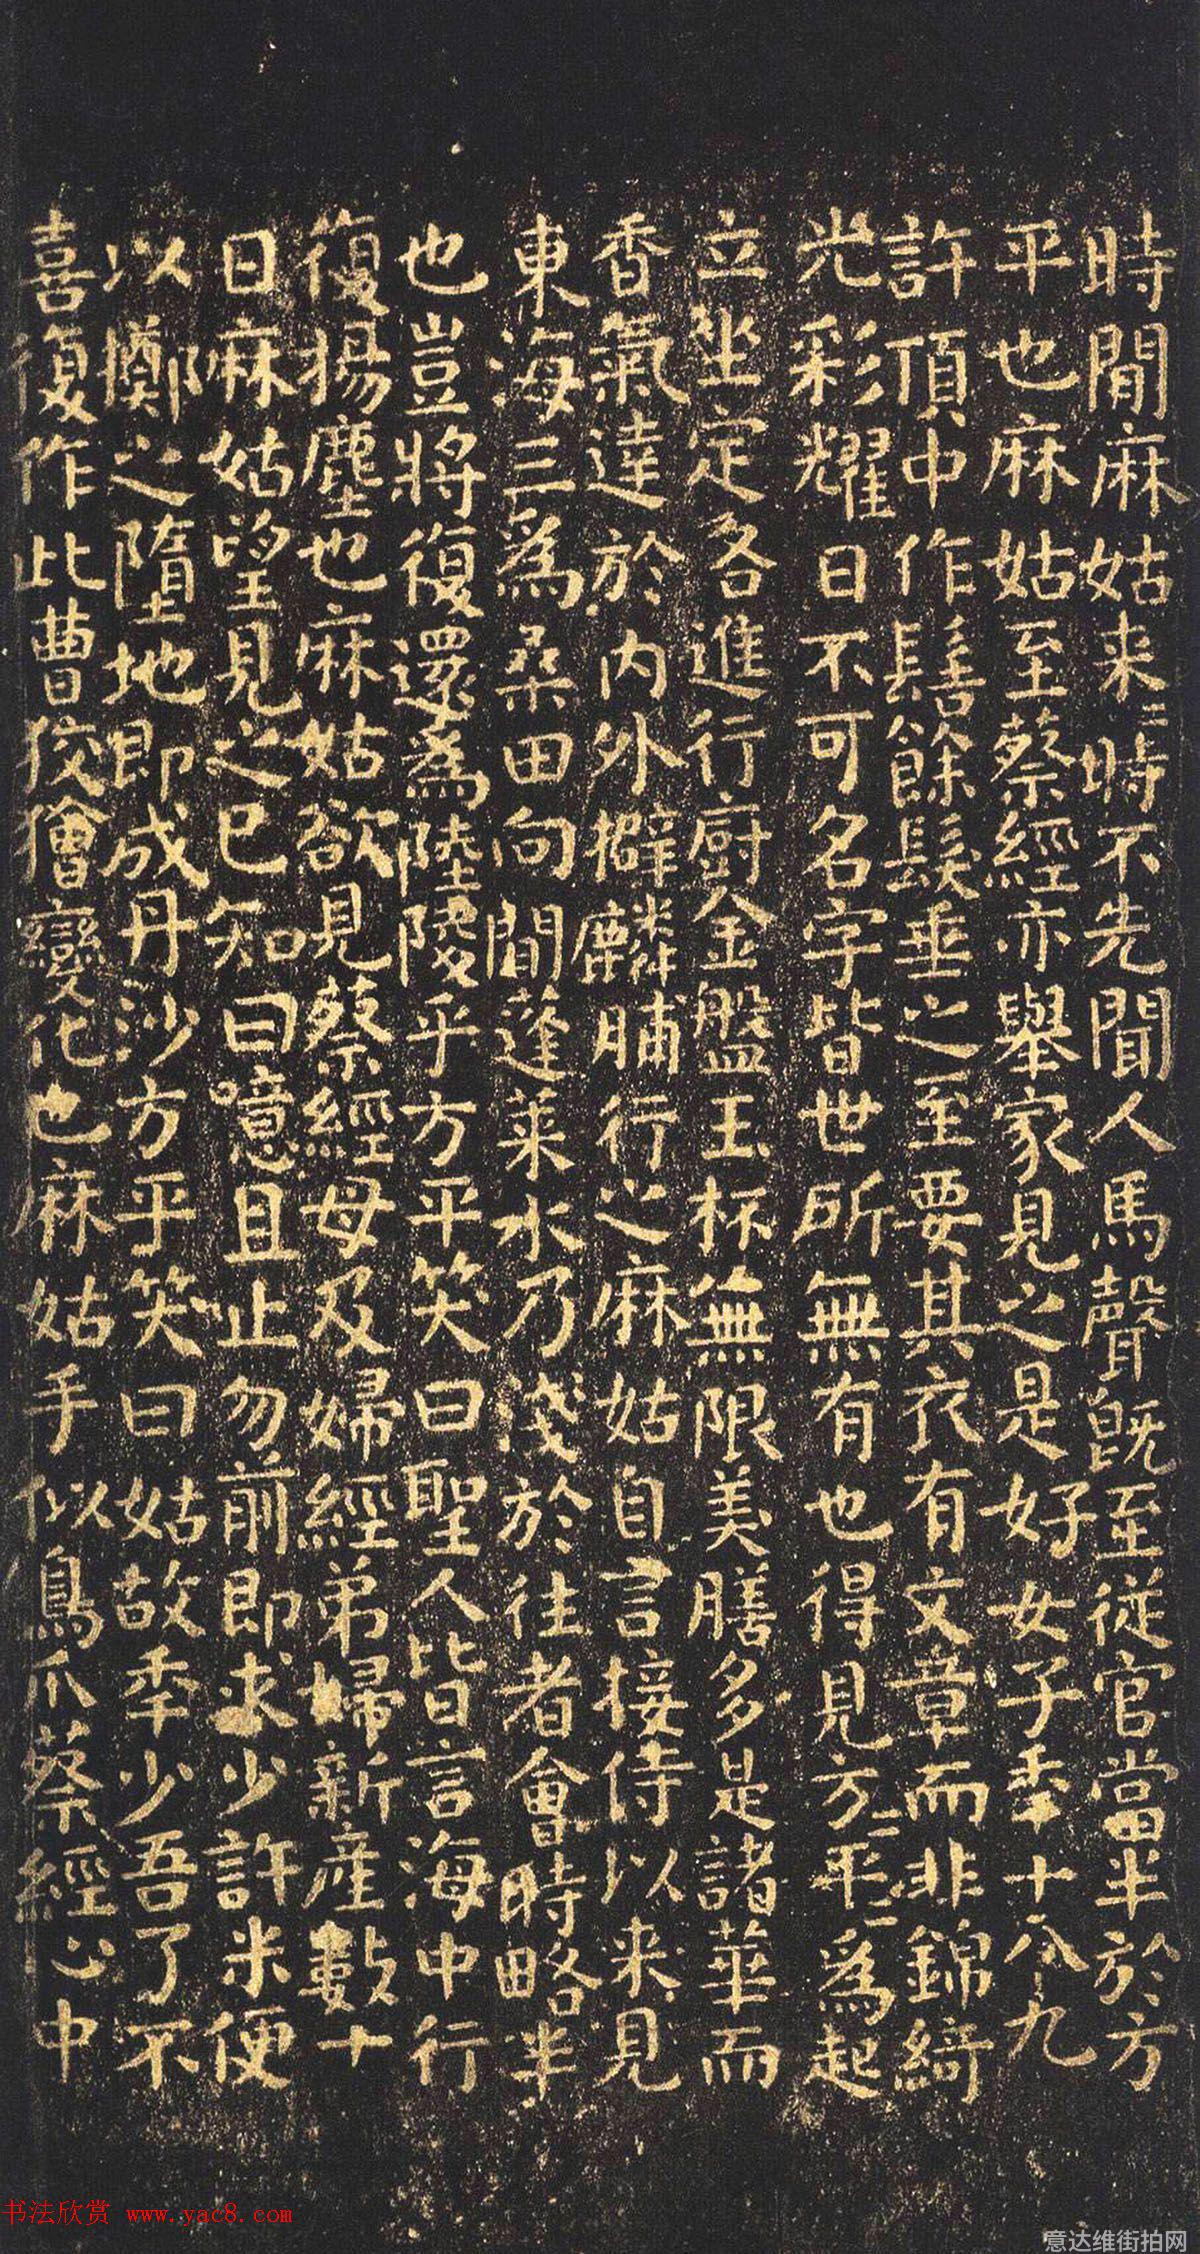 時間麻姑来二時不先聞人馬聲既至従官當半於方
平也麻姑至蔡經亦舉家見之是好女子秊十八九
許頂中作髻餘髮垂之至要其衣有文章而非錦綺
光彩耀日不可名字皆世所無有也得見方二平二為起
立坐定各進行厨金盤玉杯無限美膳多是諸華而
香氣達於内外擗麟脯行之麻姑自言接侍以来見
東海三為桑田向間蓬莱水乃淺於往者會時略半
也豈將復還為陸陵乎方平笑曰聖人皆言海中行
復揚塵也麻姑欲見蔡經母及婦經弟婦新産數十
日麻姑望見之已知曰噫且止勿前即求少許米便
以擲之墮地即成丹沙方平笑曰姑故秊少吾了不
喜復作此曹狡獪變化也麻姑手似鳥爪蔡經心中
书法欣赏 www.yac8.com
意达维街拍网